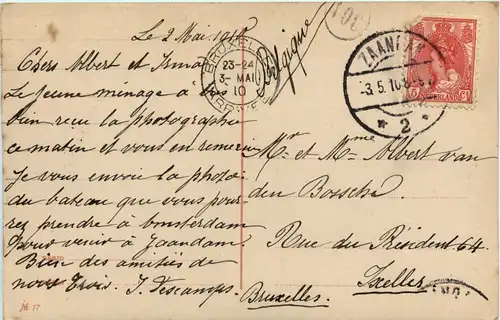 Le 2 Mai 1910
Chers Albert et Irma
Le jeune ménage à
bien recu la photographie
ce matin et vous en remercie
Je vous envoie la photo
du bateau que vous pour-
rez prendre à Amsterdam
pour venir à Zaandam.
Bien des amitiés de
nous trois. J. Descamps.
Belgique
BRUXEL
23-24
3- MAI
10
ZAANDAM
-3.5.10.
* 2 *
5 Ct
Mr et Mme Albert van
den Bossche
Rue du Président 64
Ixelles
Bruxelles.
№ 17